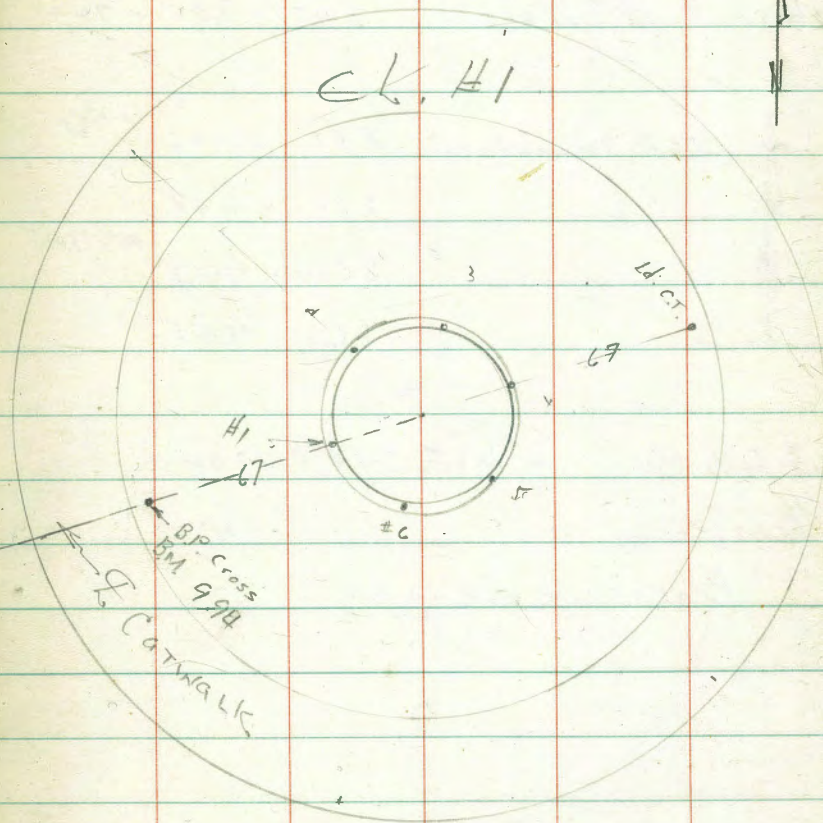 N
CL. #1
3
Ld. C.T.
2
67
#1
4
67
5
#6
B.P. Cross
BM 994
℄ CATWALK